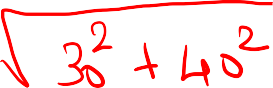 √(30² + 40²)